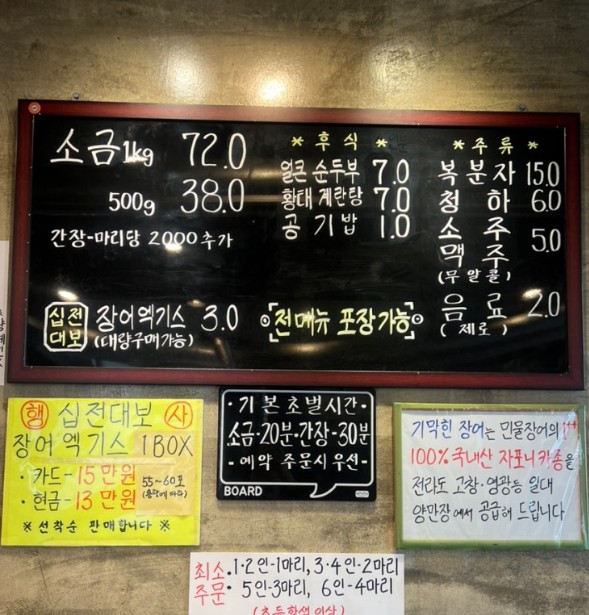 소금 1kg 72.0
500g 38.0
간장-마리당 2000 추가
십전대보 장어엑기스 3.0
(대량구매가능)
* 후식 *
얼큰 순두부 7.0
황태 계란탕 7.0
공기밥 1.0
[전메뉴 포장가능]
* 주류 *
복분자 15.0
청하 6.0
소주
맥주 5.0
(무알콜)
음료 2.0
(제로)
행 십전대보 사
장어엑기스 1BOX
· 카드-15만원
· 현금-13만원
55~60포
※ 선착순 판매합니다 ※
· 기본초벌시간 ·
소금·20분·간장-30분
- 예약 주문시 우선 -
BOARD
기막힌 장어는 민물장어의
100% 국내산 자포니카종을
전라도 고창·영광등 일대
양만장에서 공급해 드립니다
최소주문
· 1·2인-1마리, 3·4인-2마리
· 5인-3마리, 6인-4마리
(초등학생 이상)